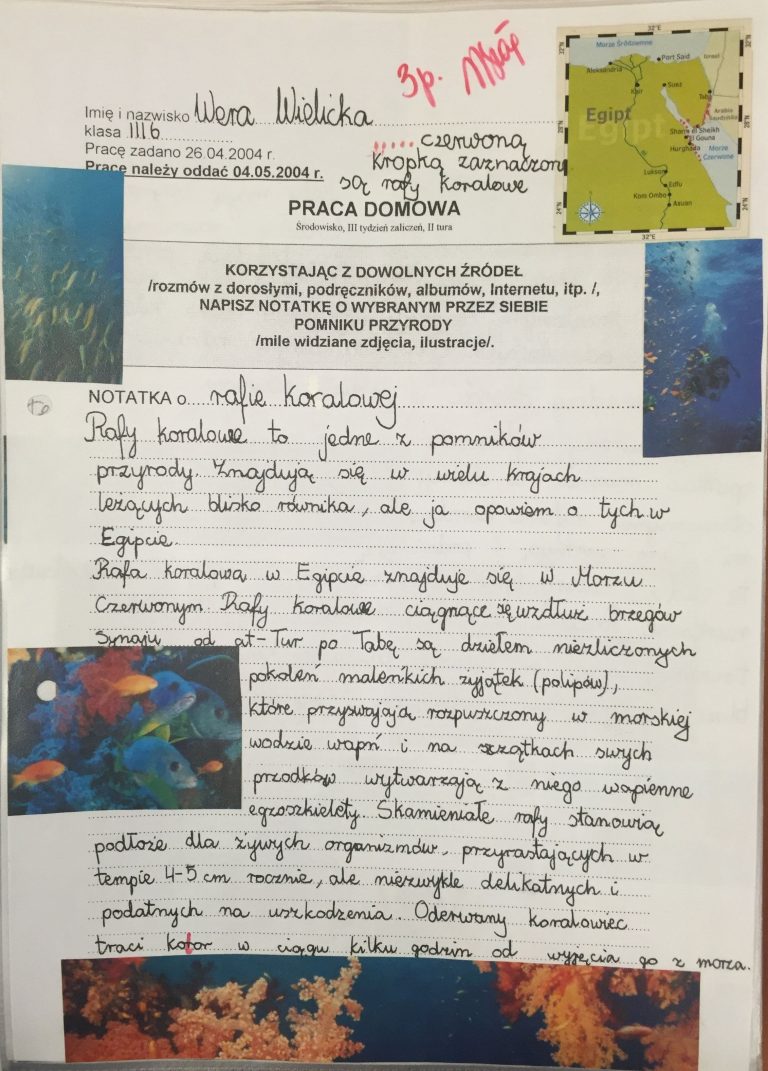 3p.
Imię i nazwisko Wera Wielicka
klasa III b
Pracę zadano 26.04.2004 r.
Pracę należy oddać 04.05.2004 r.
..... czerwoną
kropką zaznaczone
są rafy koralowe
32°E
Morze Śródziemne
Port Said
Izrael
Aleksandria
Kair
Suez
Taba
Arabia
Saudyjska
Egipt
Sharm el Sheikh
El Gouna
Hurghada
Morze
Czerwone
Luksor
Edfu
Kom Ombo
Asuan
32°N
28°N
24°N
32°E
PRACA DOMOWA
Środowisko, III tydzień zaliczeń, II tura
KORZYSTAJĄC Z DOWOLNYCH ŹRÓDEŁ
/rozmów z dorosłymi, podręczników, albumów, Internetu, itp. /,
NAPISZ NOTATKĘ O WYBRANYM PRZEZ SIEBIE
POMNIKU PRZYRODY
/mile widziane zdjęcia, ilustracje/.
NOTATKA o rafie koralowej
Rafy koralowe to jedne z pomników
przyrody. Znajdują się w wielu krajach
leżących blisko równika, ale ja opowiem o tych w
Egipcie.
Rafa koralowa w Egipcie znajduje się w Morzu
Czerwonym. Rafy koralowe ciągnące się wzdłuż brzegów
Synaju od at-Tur po Tabę są dziełem niezliczonych
pokoleń maleńkich żyjątek (polipów),
które przyswajają rozpuszczony w morskiej
wodzie wapń i na szczątkach swych
przodków wytwarzają z niego wapienne
egzoszkielety. Skamieniałe rafy stanowią
podłoże dla żywych organizmów, przyrastających w
tempie 4-5 cm rocznie, ale niezwykle delikatnych i
podatnych na uszkodzenia. Oderwany koralowiec
traci kolor w ciągu kilku godzin od wyjęcia go z morza.